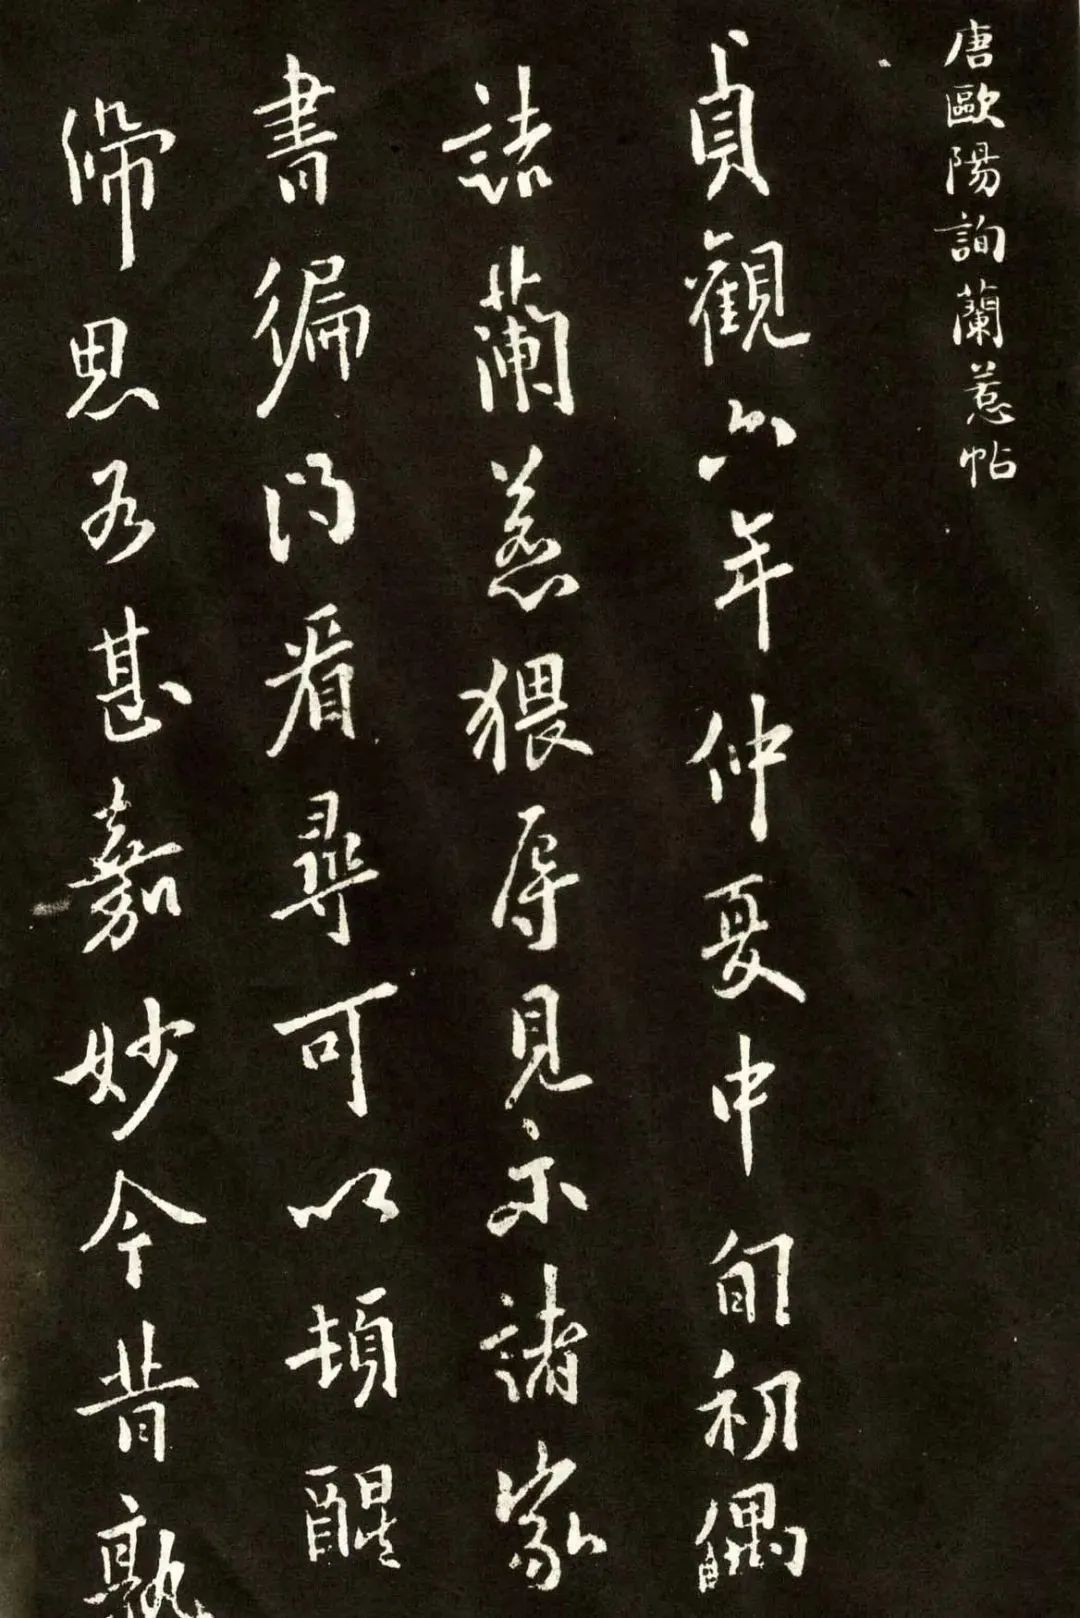 唐歐陽詢蘭惹帖
貞觀六年仲夏中旬初偶
詣蘭惹猥辱見示諸家
書徧得看尋可以頓醒
滯思為甚嘉妙今昔孰